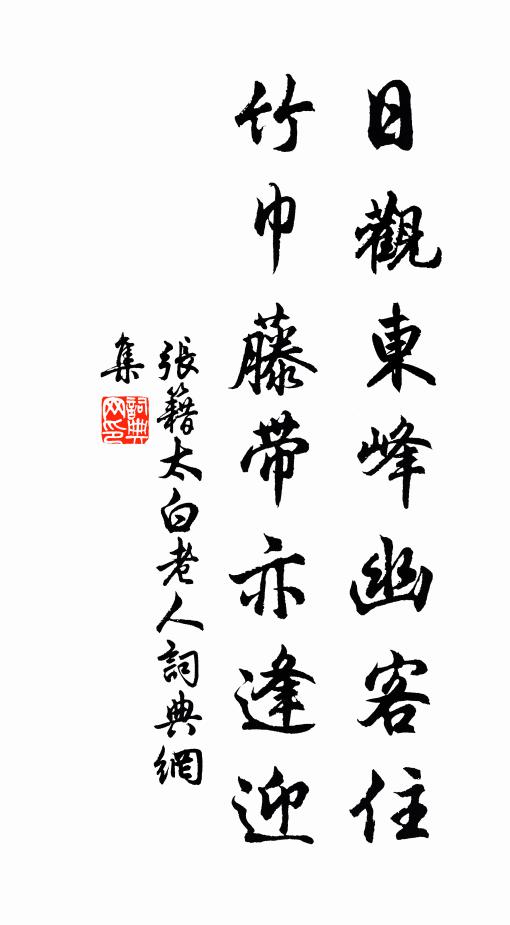 日觀東峰幽客住
竹巾藤带亦逢迎
張籍太白老人詞典網
集
詞典
网印